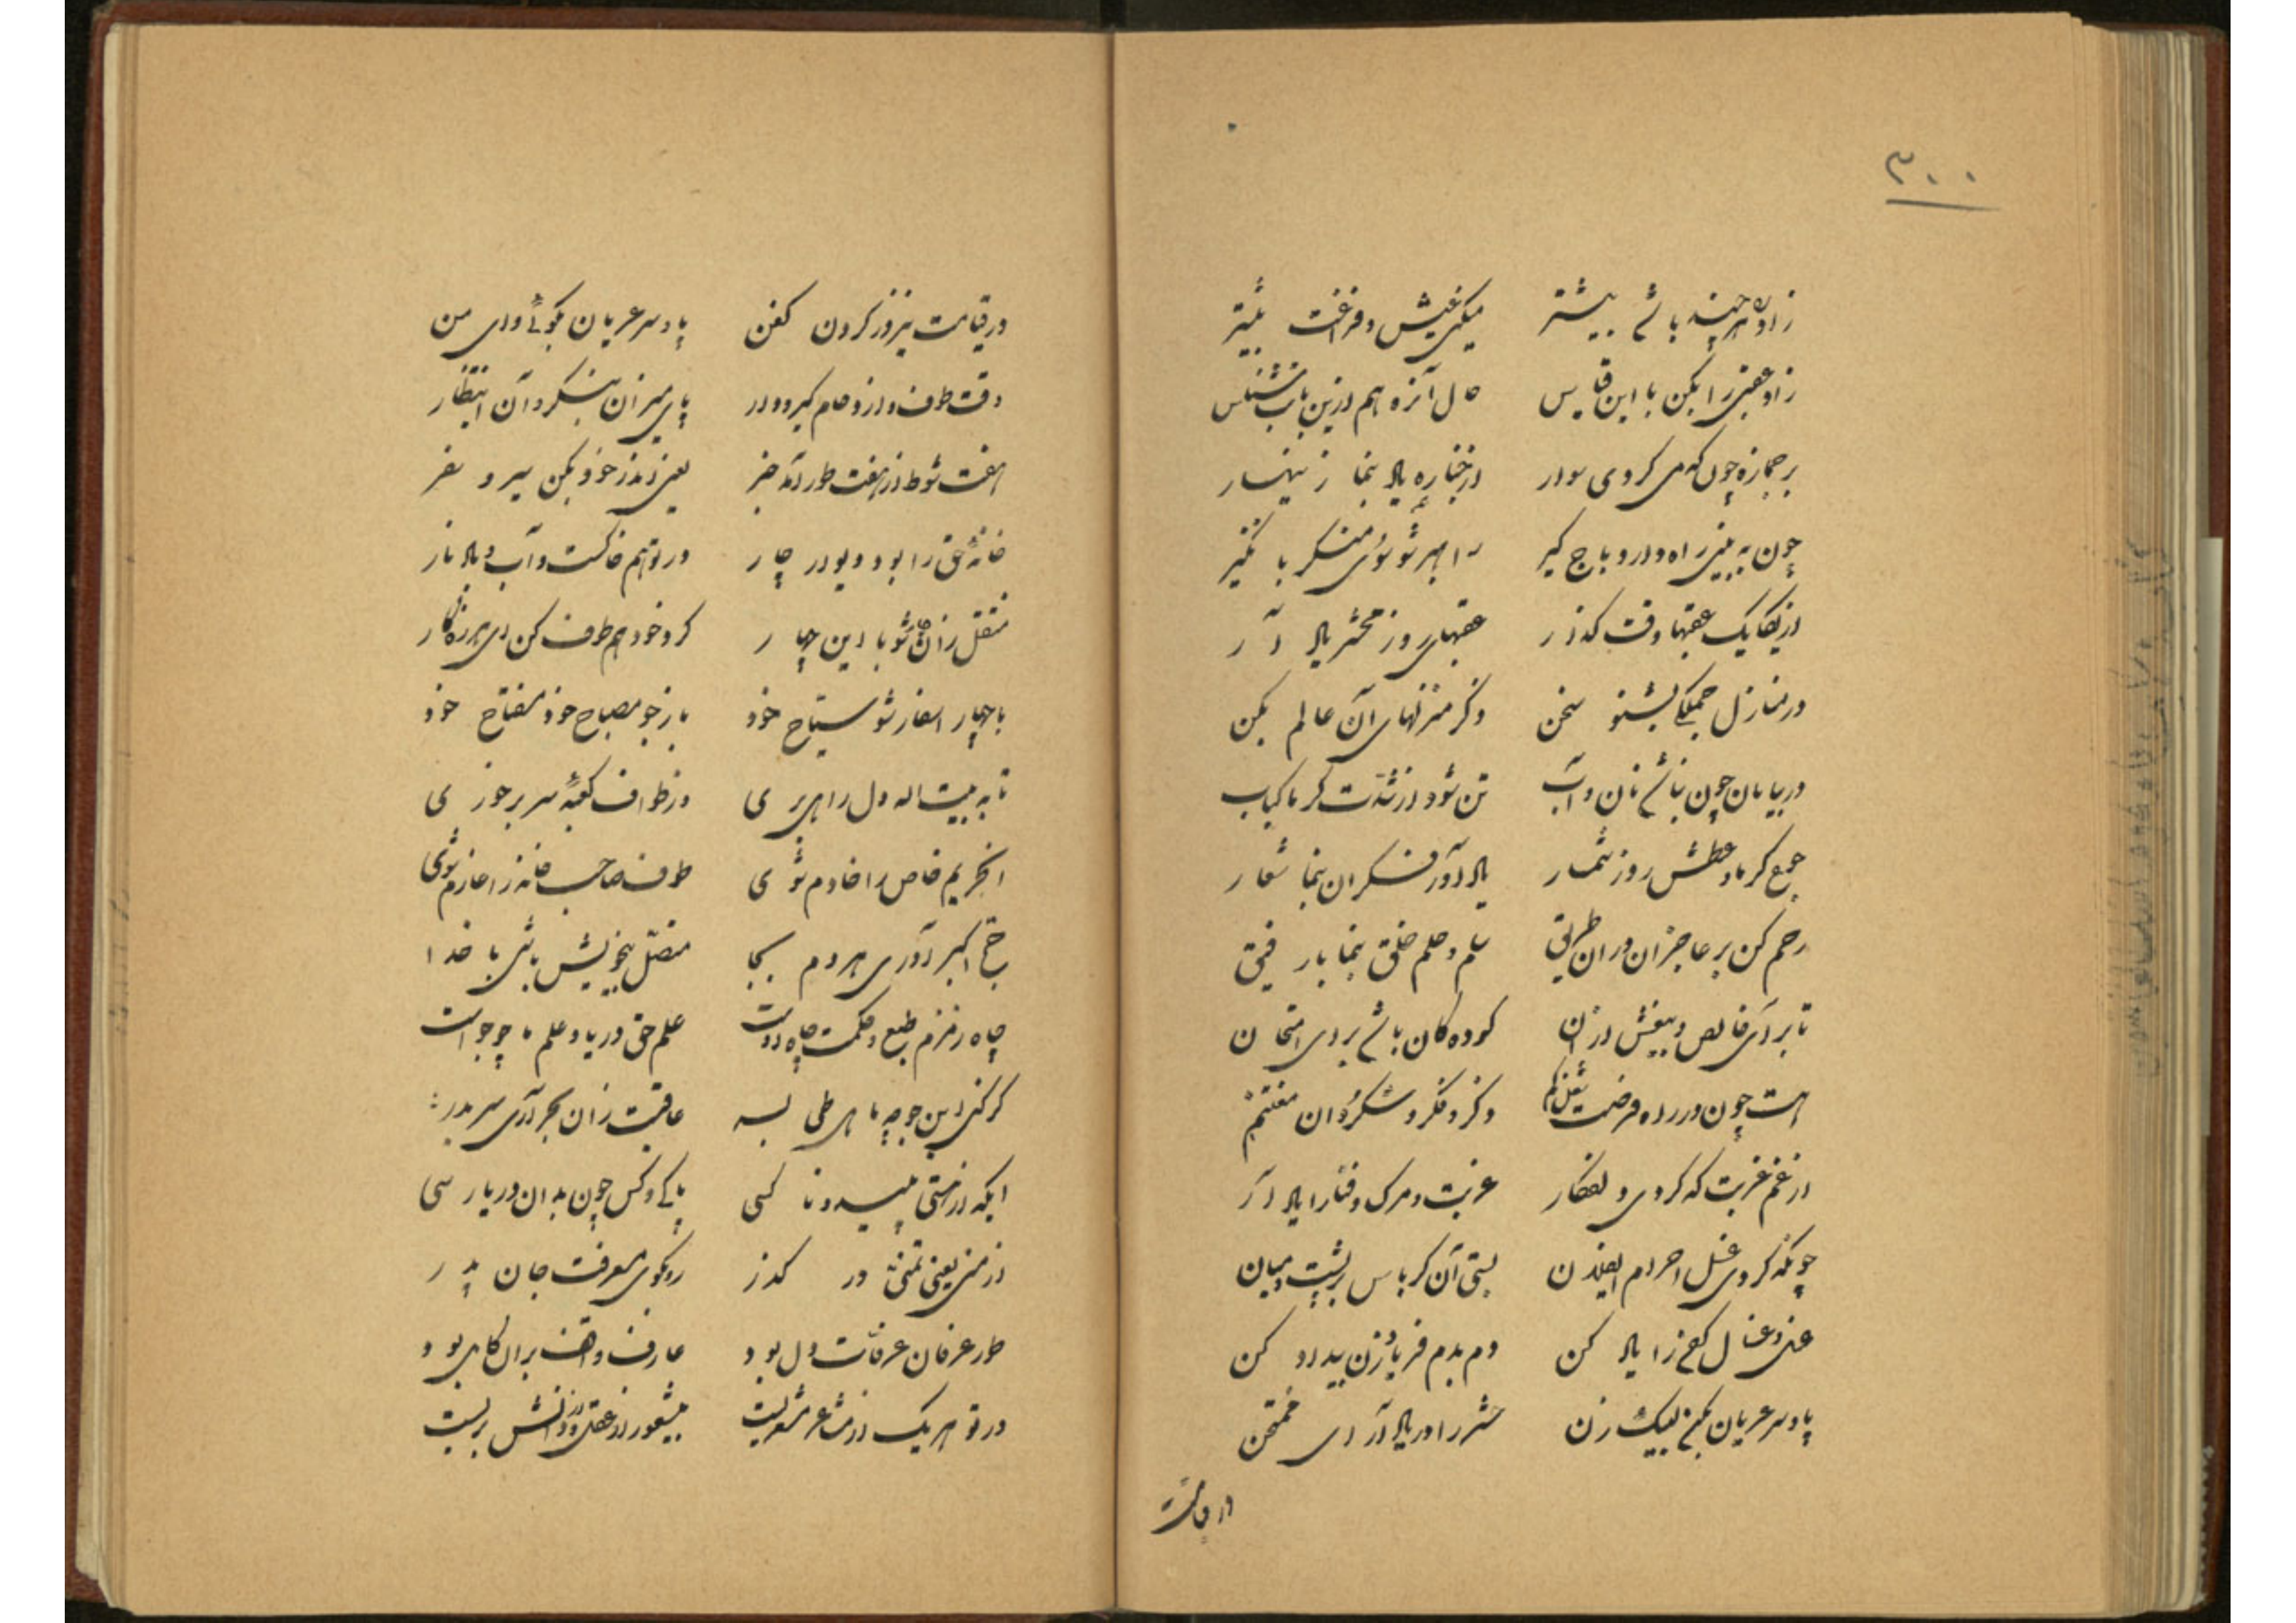 ۳۰۰
زاد ره هر چند باشی بیشتر میکنی عیش و فراغت بیشتر
زاد عقبی را بکن با این قیاس حال آنره هم ازین باب شناس
بر جمازه چون که می کردی سوار از جنازه یاد بنما زینهار
چون به بینی راه دار و باج گیر راهبر شو سوی منکر با نکیر
از یکایک عقبها وقت گذار عقبهای روز محشر یاد آر
در منازل جملگی بشنو سخن ذکر منزلهای آن عالم بکن
در بیابان چون نباشی نان و آب تن شود از شدت گرما کباب
جمع گرما و عطش روز شمار یاد آور فکر آن بنما شعار
رحم کن بر عاجزان در آن طریق سلم و حلم و خلق بنما با رفیق
تا بر آئی خالص و بیغش از آن کوده کان باشی برای امتحان
هست چون در راه فرصت شغل کم ذکر و فکر و شکر دان مغتنم
از غم غربت که کردی دلفکار غربت و مرگ و فنا را یاد آر
چونکه کردی غسل احرام ایفلان بستی آن کرباس بر پشت و میان
غسل و غسال و کفن را یاد کن دم بدم فریاد زن بیداد کن
پا و سر عریان بگهی لبیک زن حشر را در یاد آر ای ممتحن
در قیامت
در قیامت نیز در گردن کفن پا و سر عریان بگوئی وای من
وقت طوف و ازدحام گیر و دار پای میزان بنگرد آن انتظار
هفت شوط از هفت طور آمد خبر یعنی اندر خود بکن سیر و سفر
خانهٔ حق را بود دیوار چار در تو هم خاکست و آب و باد نار
منتقل زان خانه شو با این چهار گرد خود هم طوف کن ای هرزه کار
با چهار اسفار شو سیاح خود باز جو مصباح خود مفتاح خود
تا به بیت اله دل راهی بری وز طواف کعبهٔ سر برخوری
انحریم خاص را خادم شوی طوف صاحب خانه را عازم شوی
حج اکبر آوری هر دم بجا متصل بیخویش باشی با خدا
چاه زمزم طبع و حکمت چاه اوست علم حق دریا و علم ما چو جو است
گر کنی این جو چه ماهی طی بسر عاقبت زان بحر آری سر بدر
ایکه از مستی پلید و ناکسی پاک و کس چون بدان دریا رسی
از منی یعنی تمنی در گذر رو بکوی معرفت جان پدر
طور عرفان عرفات دل بود عارف واقف بران کامل بود
در تو هر یک از مشاعر مشعریست بیشعور از عقل و دانش بریست